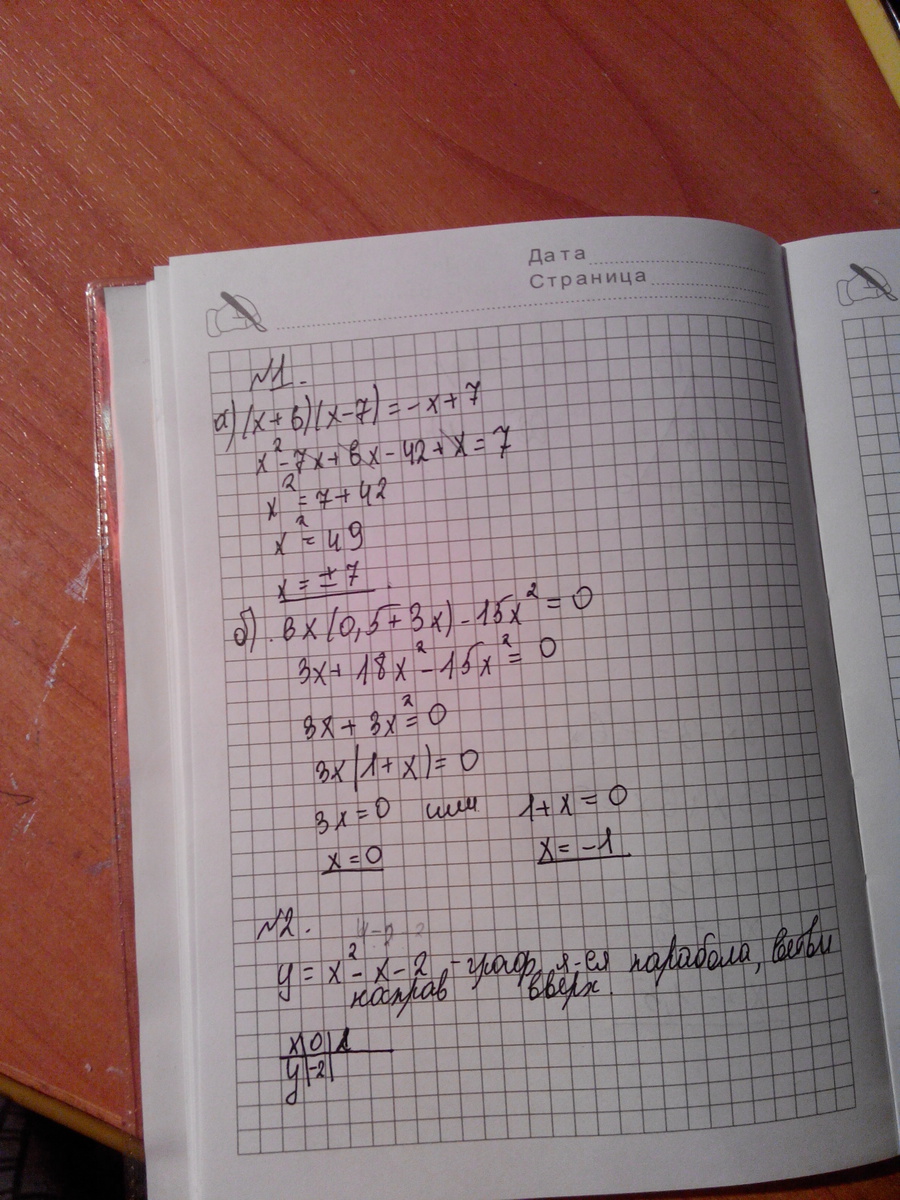 Дата
Страница
№1.
а) (x+6)(x-7)=-x+7
x²-7x+6x-42+x=7
x²=7+42
x²=49
x=±7.
б). 6x(0,5+3x)-15x²=0
3x+18x²-15x²=0
3x+3x²=0
3x(1+x)=0
3x=0 или 1+x=0
x=0 x=-1
№2.
y=x²-x-2 - граф. я-ся парабола, ветви
направ вверх.
x|0|1
y|-2|